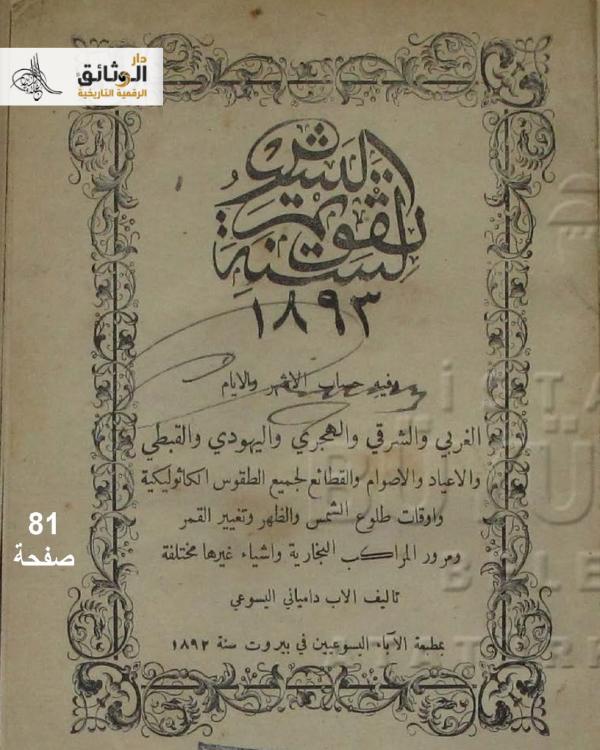 دار
الوثائق
الرقمية التاريخية
تقويم البشير
لسنة
١٨٩٣
وفيه حساب الاشهر والايام
الغربي والشرقي والهجري واليهودي والقبطي
والاعياد والاصوام والقطائع لجميع الطقوس الكاثوليكية
واوقات طلوع الشمس والظهر وتغيير القمر
ومرور المراكب البخارية واشياء غيرها مختلفة
تاليف الاب دامياني اليسوعي
بمطبعة الآباء اليسوعيين في بيروت سنة ١٨٩٢
81
صفحة